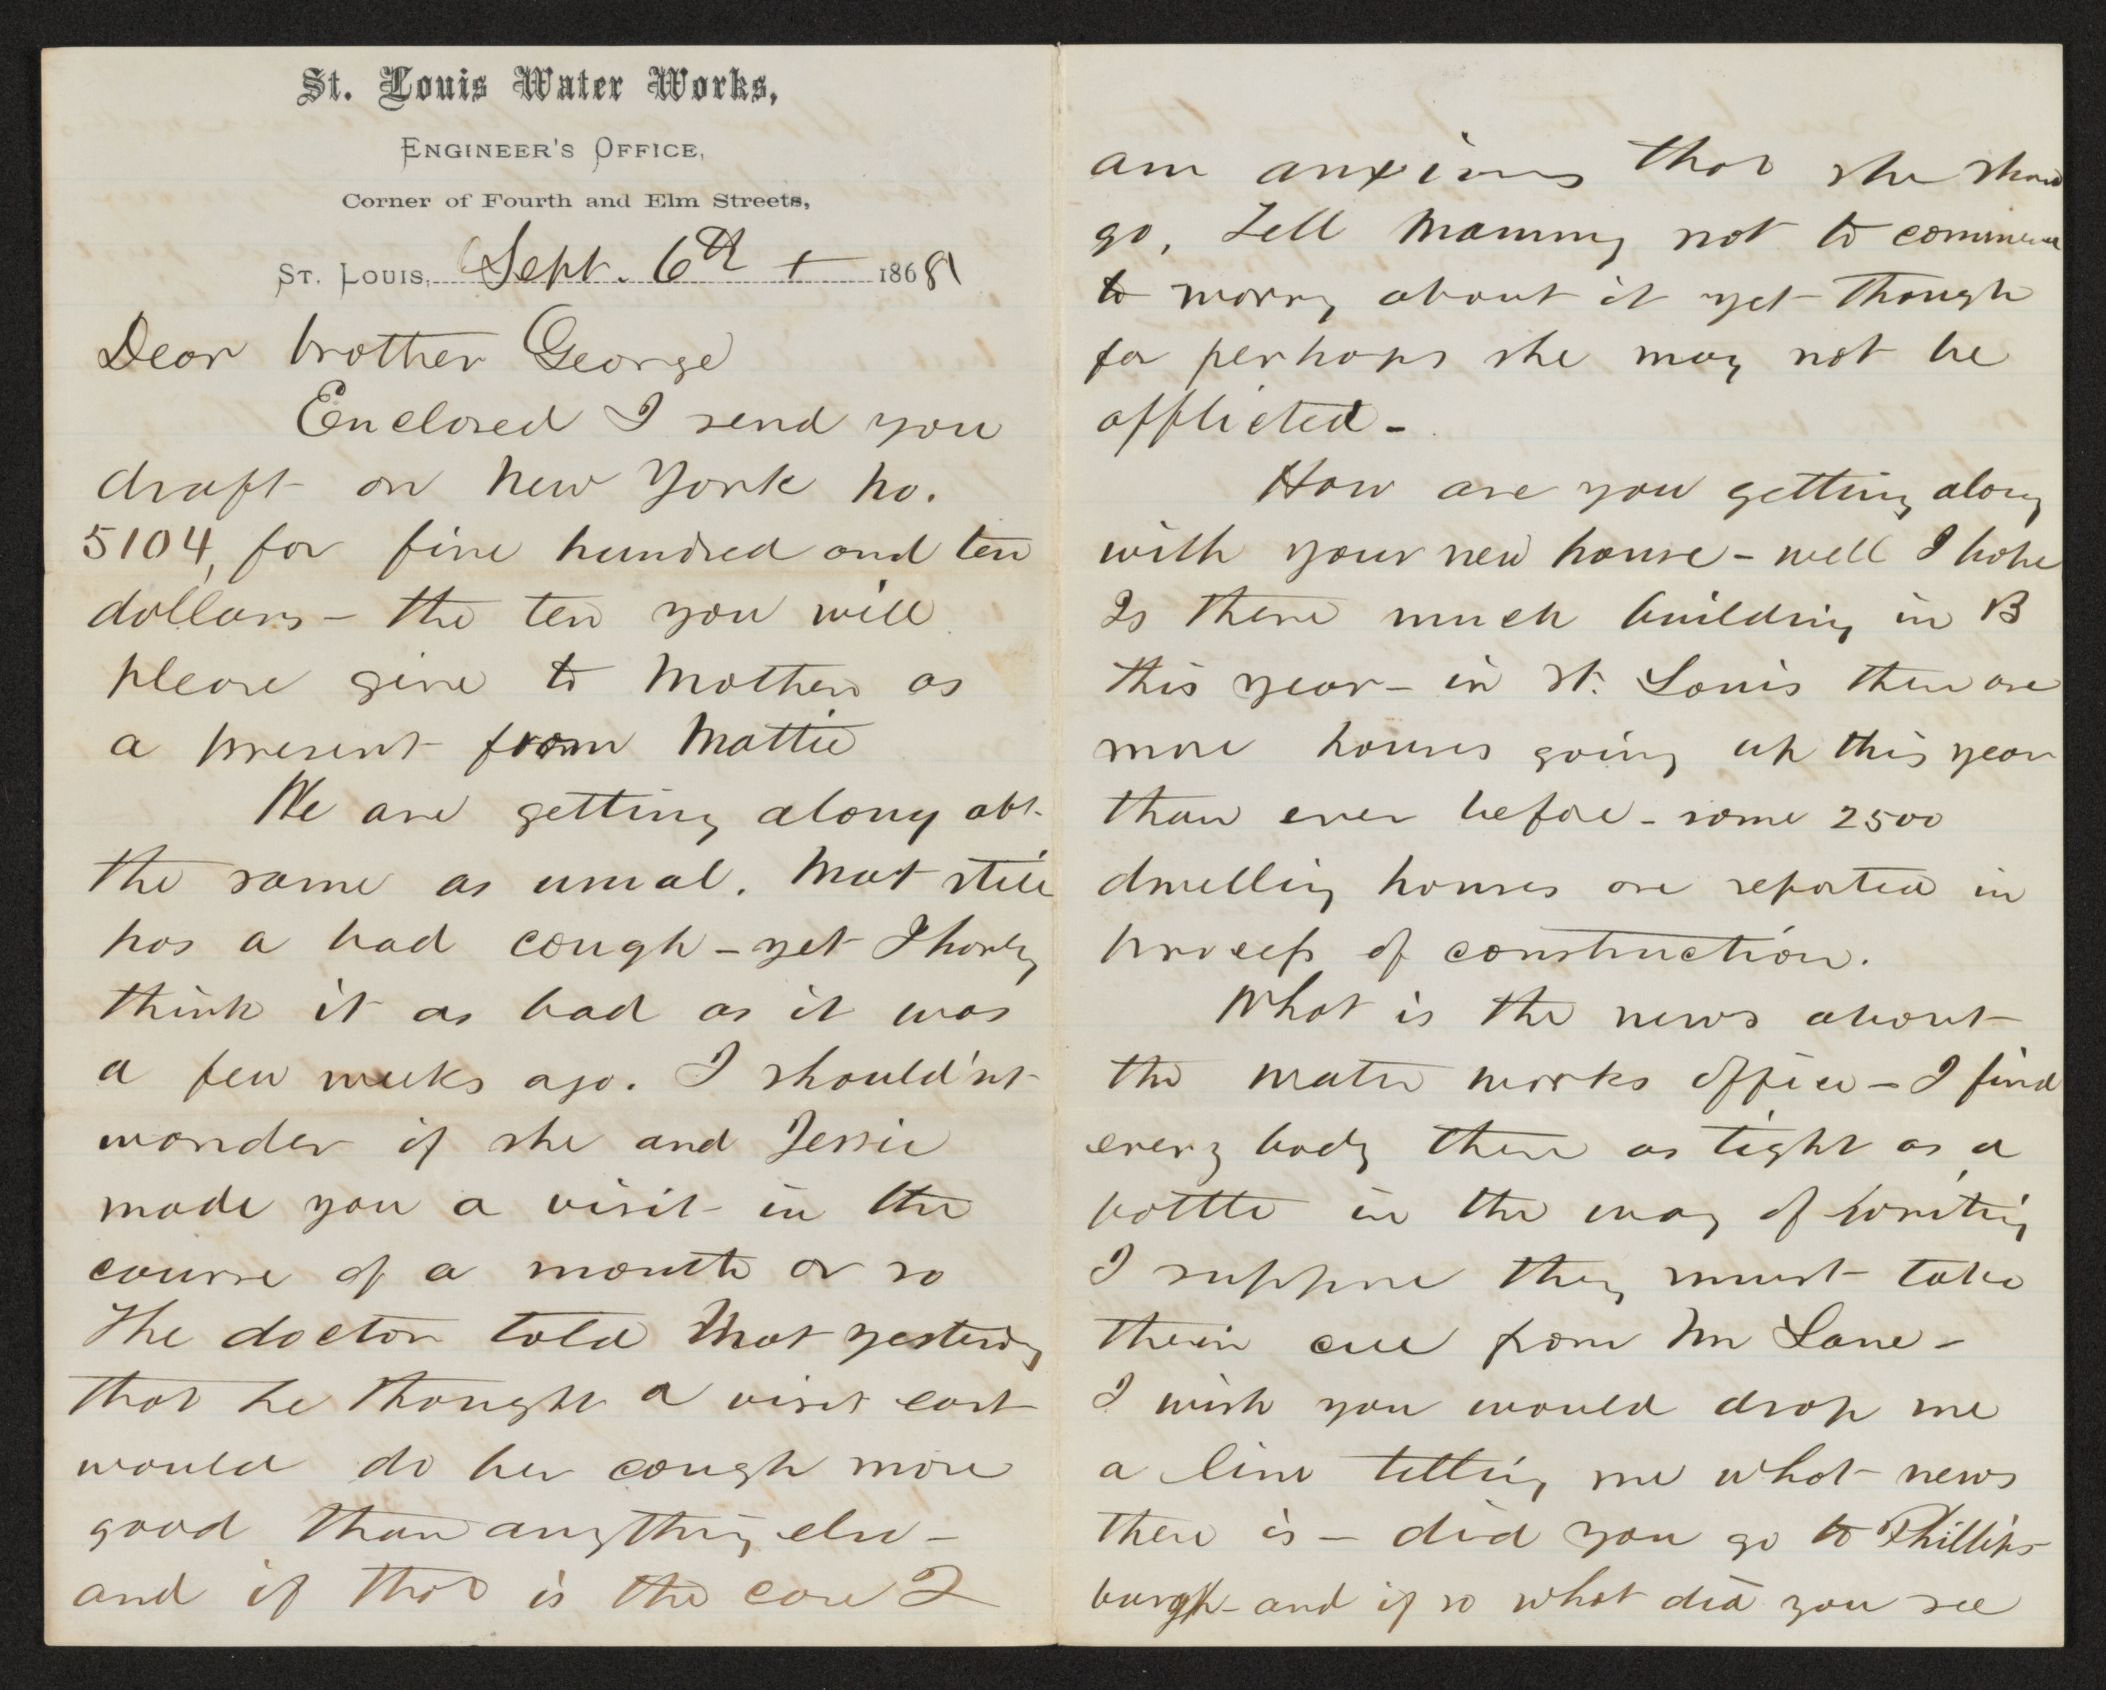 St. Louis Water Works,
Engineer's Office,
Corner of Fourth and Elm Streets,
St. Louis, Sept. 6th 1868
Dear brother George
Enclosed I send you
draft on New York no.
5104, for five hundred and ten
dollars – the ten you will
please give to Mother as
a present from Mattie
We are getting along abt.
the same as usual. Mat still
has a bad cough – yet I hardly
think it as bad as it was
a few weeks ago. I should'nt
wonder if she and Jessie
made you a visit in the
course of a month or so
The doctor told Mat yesterday
that he thought a visit east
would do her cough more
good than anything else –
and if that is the case I
am anxious that she should
go, Tell Mammy not to commence
to worry about it yet though
for perhaps she may not be
afflicted –
How are you getting along
with your new house – well I hope
Is there much building in B
this year – in St. Louis there are
more houses going up this year
than ever before – some 2500
dwelling houses are reported in
process of construction.
What is the news about
the water works office – I find
every body there as tight as a
bottle in the way of writing
I suppose they must take
their cue from Mr Lane –
I wish you would drop me
a line telling me what news
there is – did you go to Phillips-
burgh – and if so what did you see